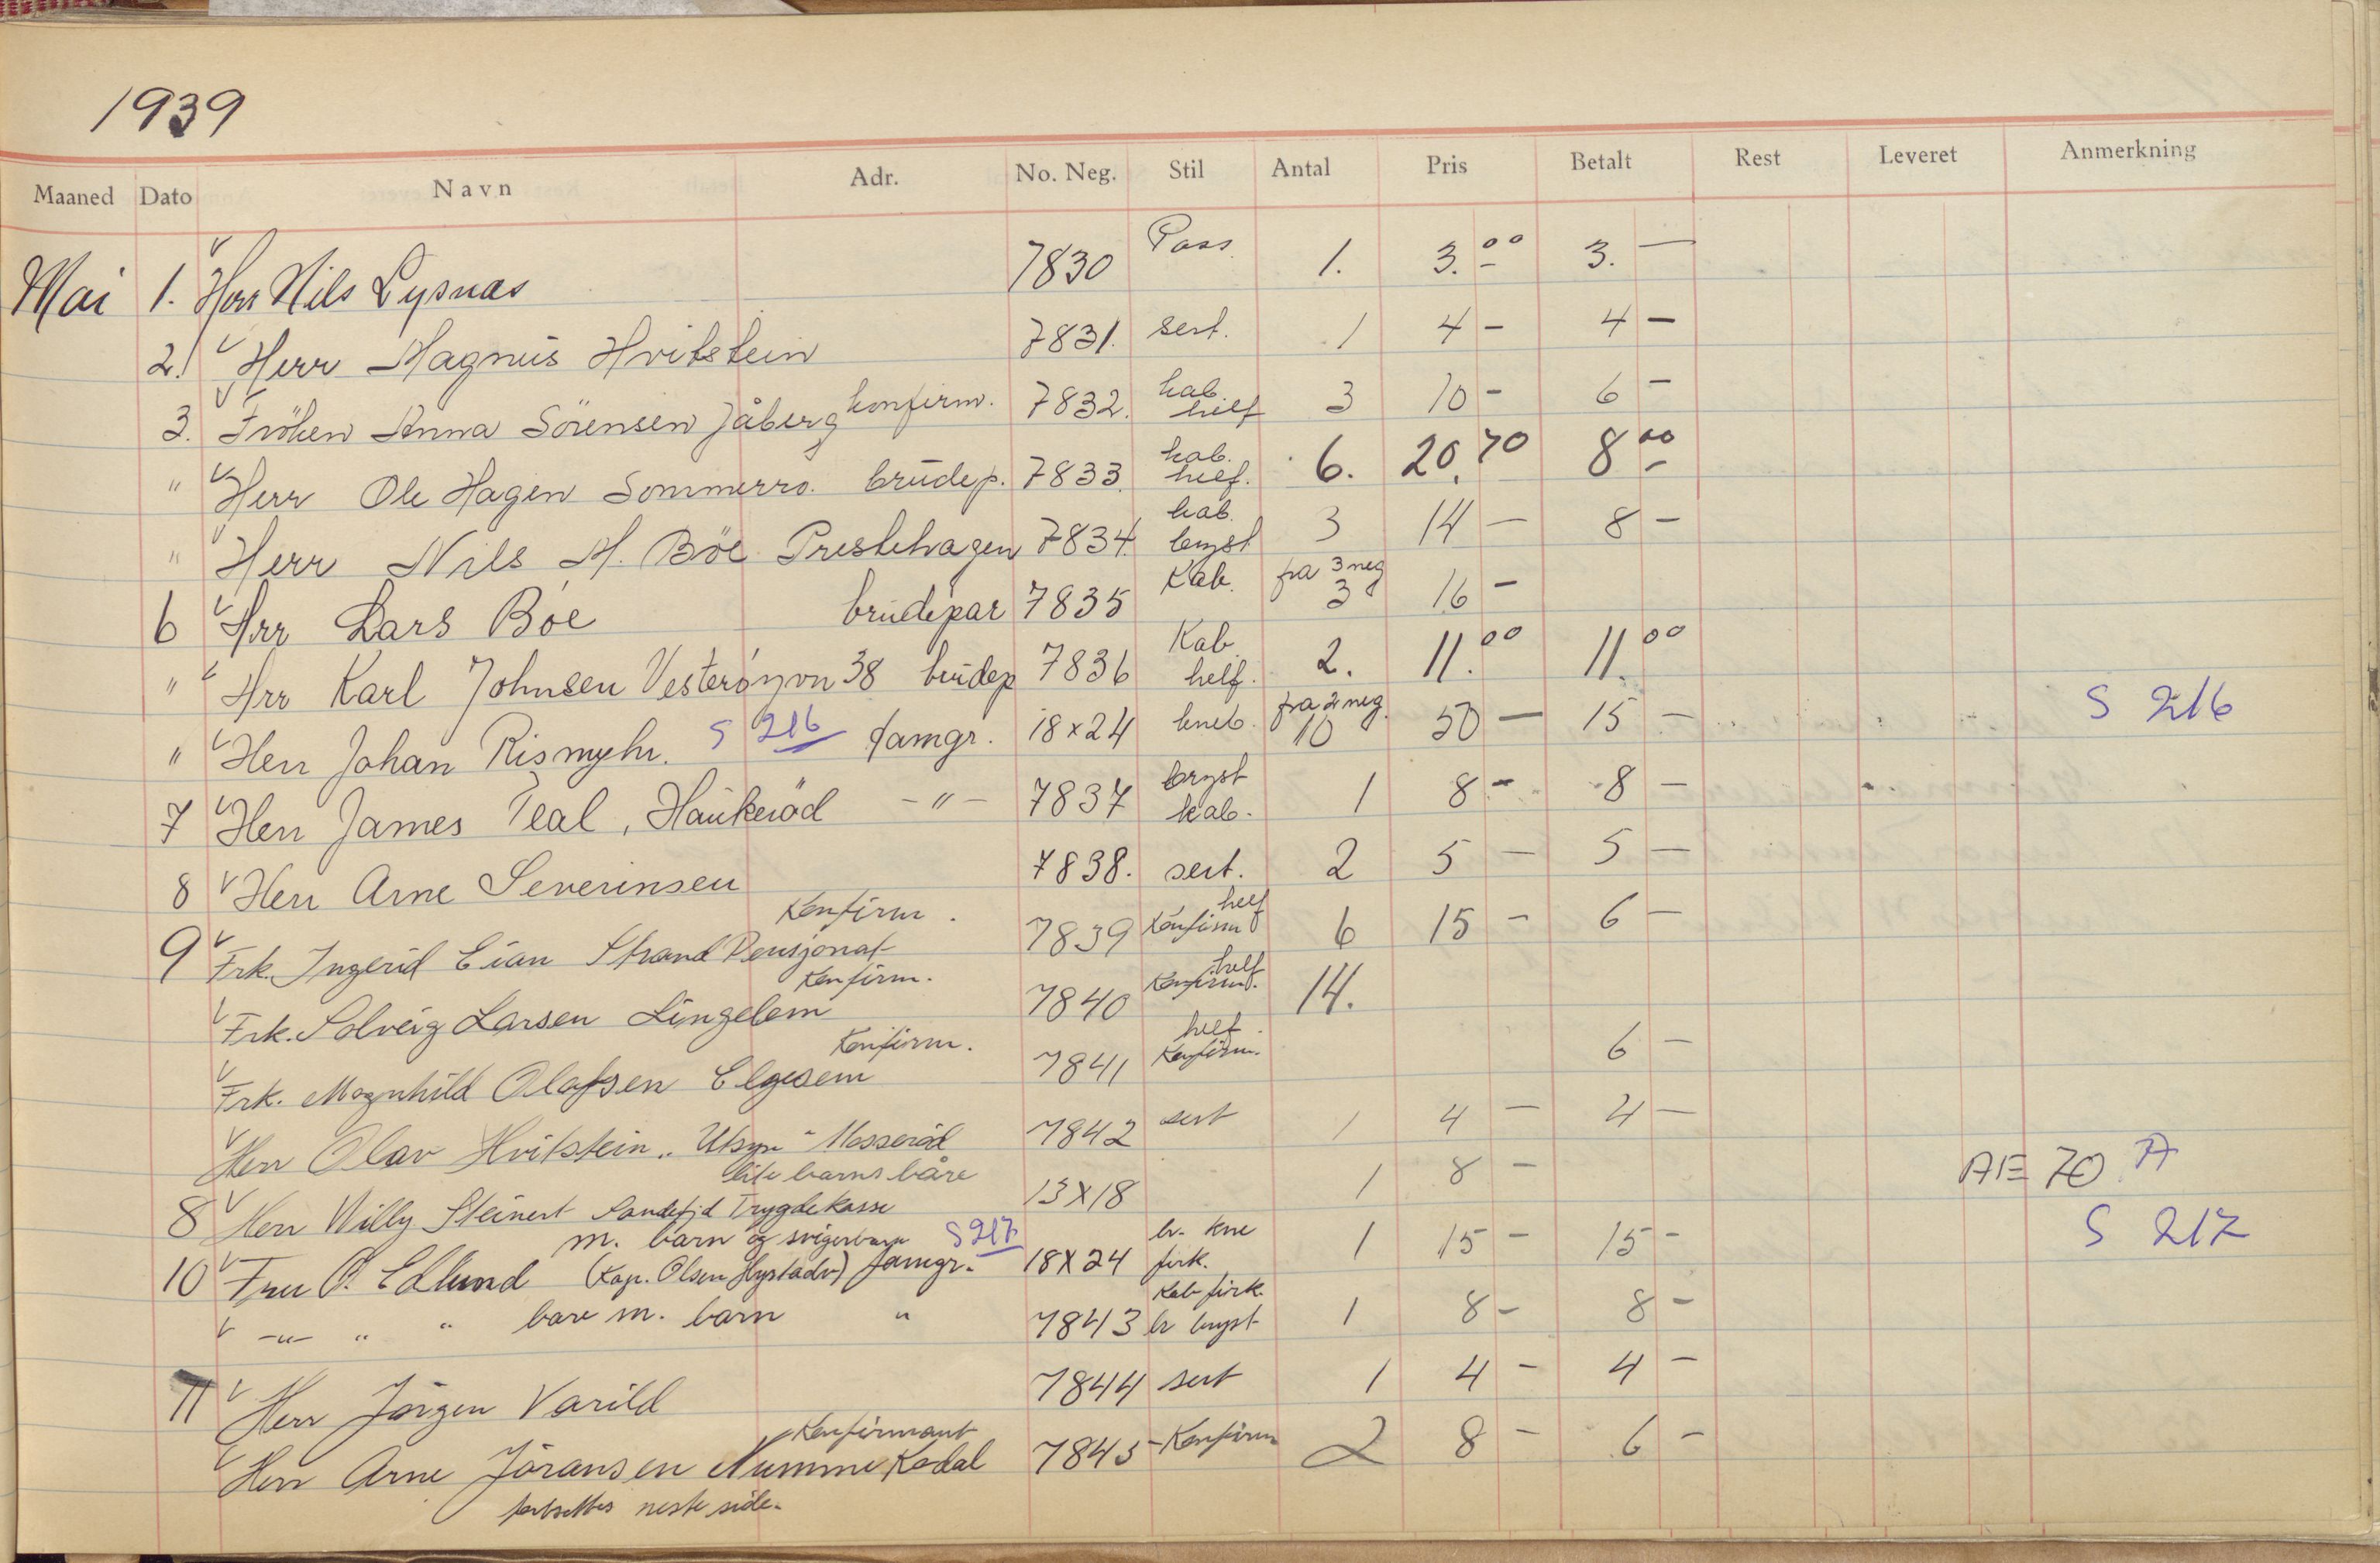 1939
Maaned Dato Navn Adr. No. Neg. Stil Antal Pris Betalt Rest Leveret Anmerkning
Mai 1. Herr Nils Lysnæs 7830 Pass. 1. 3.00 3. —
2. Herr Magnus Hvitstein 7831. sert. 1 4 - 4 -
3. Fröken Anna Sörensen Jåberg konfirm. 7832. kab. helf 3 10 - 6 -
" Herr Ole Hagen Sommerro. brudep. 7833. kab. helf. 6. 20.70 8 00
" Herr Nils M. Böe Prestehagen 7834. kab. bryst 3 14 - 8 -
6 Hrr Lars Böe brudepar 7835 Kab. fra 3 neg 3 16 -
" Hrr Karl Johnsen Vesteröyvn 38 brudep 7836 Kab. helf. 2. 11.00 11.00
" Herr Johan Rismyhr. S 216 famgr. 18x24 kneb. fra 2 neg. 10 50 - 15 - S 216
7 Herr James Teal, Haukeröd - " - 7837 bryst kab. 1 8 - 8 -
8 Herr Arne Severinsen 7838. sert. 2 5 - 5 -
Konfirm.
9 Frk. Ingerid Eian Strand Pensjonat 7839 helf Konfirm 6 15 - 6 -
Konfirm.
Frk. Solveig Larsen Lingelem 7840 helf Konfirm. 14.
Konfirm.
Frk. Magnhild Olafsen Elgesem 7841 helf. Konfirm. 6 -
Herr Olav Hvitstein "Utsyn" Mosseröd 7842 sert 1 4 - 4 -
lite barns båre
8 Herr Willy Steinert Sandefjd Trygdekasse 13x18 1 8 - AE 70 A
m. barn og svigerbarn S 217
10 Fru O. Edlund (Kap. Olsen Hystadv) famgr. 18x24 br. kne firk. 1 15 - 15 - S 217
-"- " " bare m. barn " 7843 Kab firk. br bryst 1 8 - 8 -
11 Herr Jörgen Varild 7844 sert 1 4 - 4 -
Konfirmant
Herr Arne Jöransen Numme Kodal 7845 Konfirm 2 8 - 6 -
fortsettes neste side.